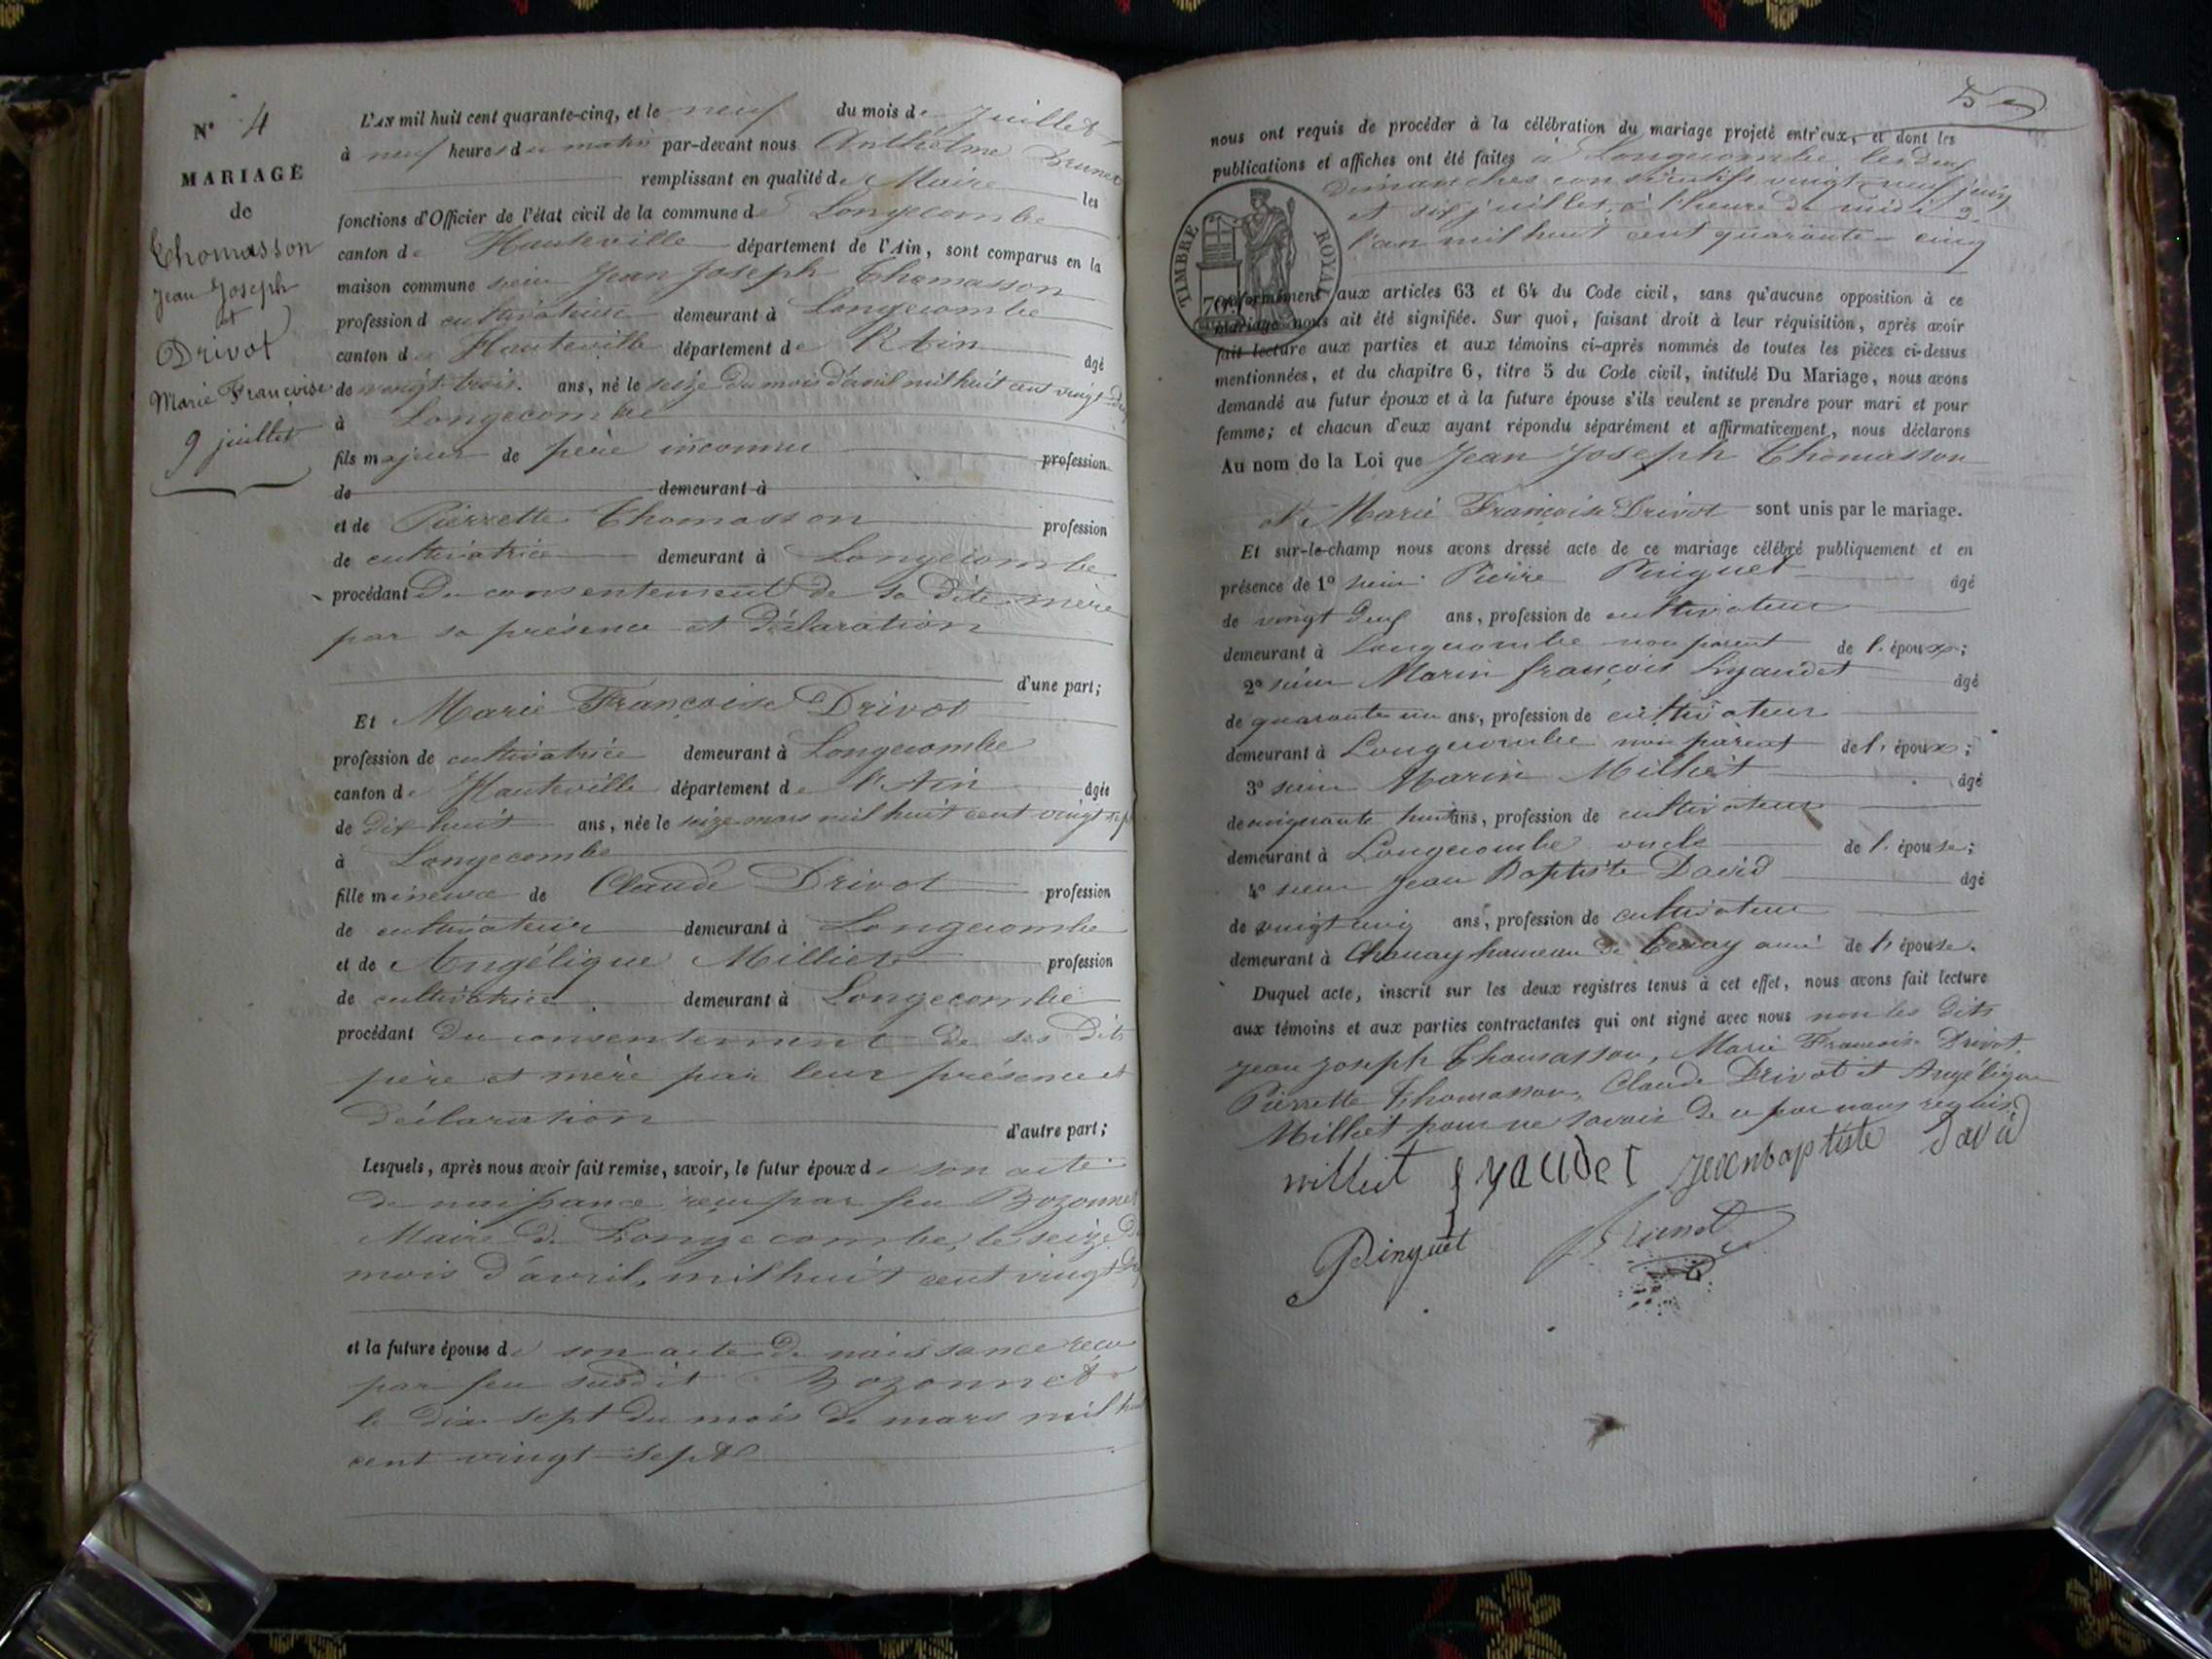 N° 4
MARIAGE
de
Thomasson
Jean Joseph
et
Drivot
Marie Françoise
9 juillet
L'AN mil huit cent quarante-cinq, et le neuf du mois de Juillet
à neuf heures du matin par-devant nous Anthelme Brunet
remplissant en qualité de Maire les
fonctions d'Officier de l'état civil de la commune de Longecombe
canton de Hauteville département de l'Ain, sont comparus en la
maison commune sieur Jean Joseph Thomasson
profession d cultivateur demeurant à Longecombe
canton de Hauteville département de l'Ain âgé
de vingt trois ans, né le seize du mois d'avril mil huit cent vingt deux
à Longecombe
fils majeur de père inconnu profession
de demeurant à
et de Pierrette Thomasson profession
de cultivatrice demeurant à Longecombe
procédant Du consentement de sa dite mère
par sa présence et déclaration
d'une part;
Et Marie Françoise Drivot
profession de cultivatrice demeurant à Longecombe
canton de Hauteville département de l'Ain âgée
de dix huit ans, née le seize mars mil huit cent vingt sept
à Longecombe
fille mineure de Claude Drivot profession
de cultivateur demeurant à Longecombe
et de Angélique Milliet profession
de cultivatrice demeurant à Longecombe
procédant du consentement de ses dits
père et mère par leur présence et
déclaration
d'autre part;
Lesquels, après nous avoir fait remise, savoir, le futur époux de son acte
de naissance reçu par feu Bozonnet
Maire de Longecombe, le seize du
mois d'avril, mil huit cent vingt deux
et la future épouse de son acte de naissance reçu
par feu susdit Bozonnet
le dix sept du mois de mars mil huit
cent vingt sept
nous ont requis de procéder à la célébration du mariage projeté entr'eux, et dont les
publications et affiches ont été faites à Longecombe les deux
dimanches consécutifs vingt neuf juin
et six juillet, à l'heure de midi de
l'an mil huit cent quarante cinq
TIMBRE ROYAL
conformément aux articles 63 et 64 du Code civil, sans qu'aucune opposition à ce
mariage nous ait été signifiée. Sur quoi, faisant droit à leur réquisition, après avoir
fait lecture aux parties et aux témoins ci-après nommés de toutes les pièces ci-dessus
mentionnées, et du chapitre 6, titre 5 du Code civil, intitulé Du Mariage, nous avons
demandé au futur époux et à la future épouse s'ils veulent se prendre pour mari et pour
femme; et chacun d'eux ayant répondu séparément et affirmativement, nous déclarons
Au nom de la Loi que Jean Joseph Thomasson
et Marie Françoise Drivot sont unis par le mariage.
Et sur-le-champ nous avons dressé acte de ce mariage célébré publiquement et en
présence de 1° sieur Pierre Pinguet âgé
de vingt deux ans, profession de cultivateur
demeurant à Longecombe non parent de l'époux;
2° sieur Marin françois Lyaudet âgé
de quarante un ans, profession de cultivateur
demeurant à Longecombe non parent de l'époux;
3° sieur Marin Milliet âgé
de cinquante huit ans, profession de cultivateur
demeurant à Longecombe oncle de l'épouse;
4° sieur Jean Baptiste David âgé
de vingt cinq ans, profession de cultivateur
demeurant à hameau de Tenay ami de l'épouse.
Duquel acte, inscrit sur les deux registres tenus à cet effet, nous avons fait lecture
aux témoins et aux parties contractantes qui ont signé avec nous non les dits
Jean Joseph Thomasson, Marie Françoise Drivot,
Pierrette Thomasson, Claude Drivot et Angélique
Milliet pour ne savoir de ce par nous requis
milliet Lyaudet Jeanbaptiste David
Pinguet Brunet